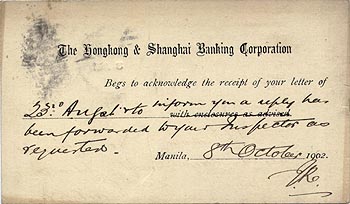 The Hongkong & Shanghai Banking Corporation
Begs to acknowledge the receipt of your letter of
23rd Augst & to inform you a reply has
with enclosures as advised
been forwarded to your Inspector as
requested.
Manila, 8th October 1902.